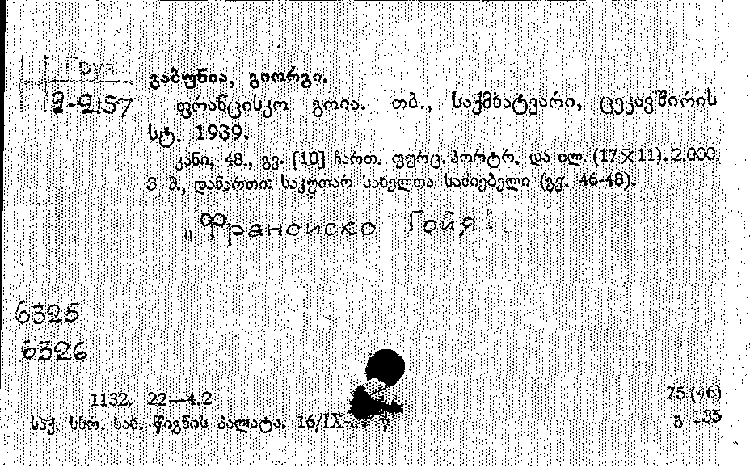 Груз
2-2.57
გაბუნია, გიორგი.
ფრანცისკო გოია. თბ., საქმხატვარი, ცეკავშირის
სტ. 1939.
კანი, 48., გვ. [10] ჩართ. ფურც. პორტრ. და ილ. (17×11). 2.000.
3 მ., დანართი: საკუთარ სახელთა საძიებელი (გვ. 46-48).
„Франсиско Гойя".
6325
6326
1132. 22—4.2
75(46)
საქ. სსრ. სახ. წიგნის პალატა. 16/IX-
გ